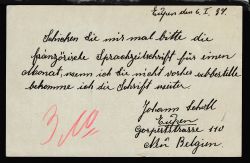 Eupen den 6. I. 27.
Schicken Sie mir mal bitte die
französische Sprachzeitschrift für einen
Monat, wenn ich Sie nicht vorher abbestelle
bekomme ich die Schrift weiter.
Johann Scholl
Eupen
Gospertstrasse 110
Neu Belgien.
3,10